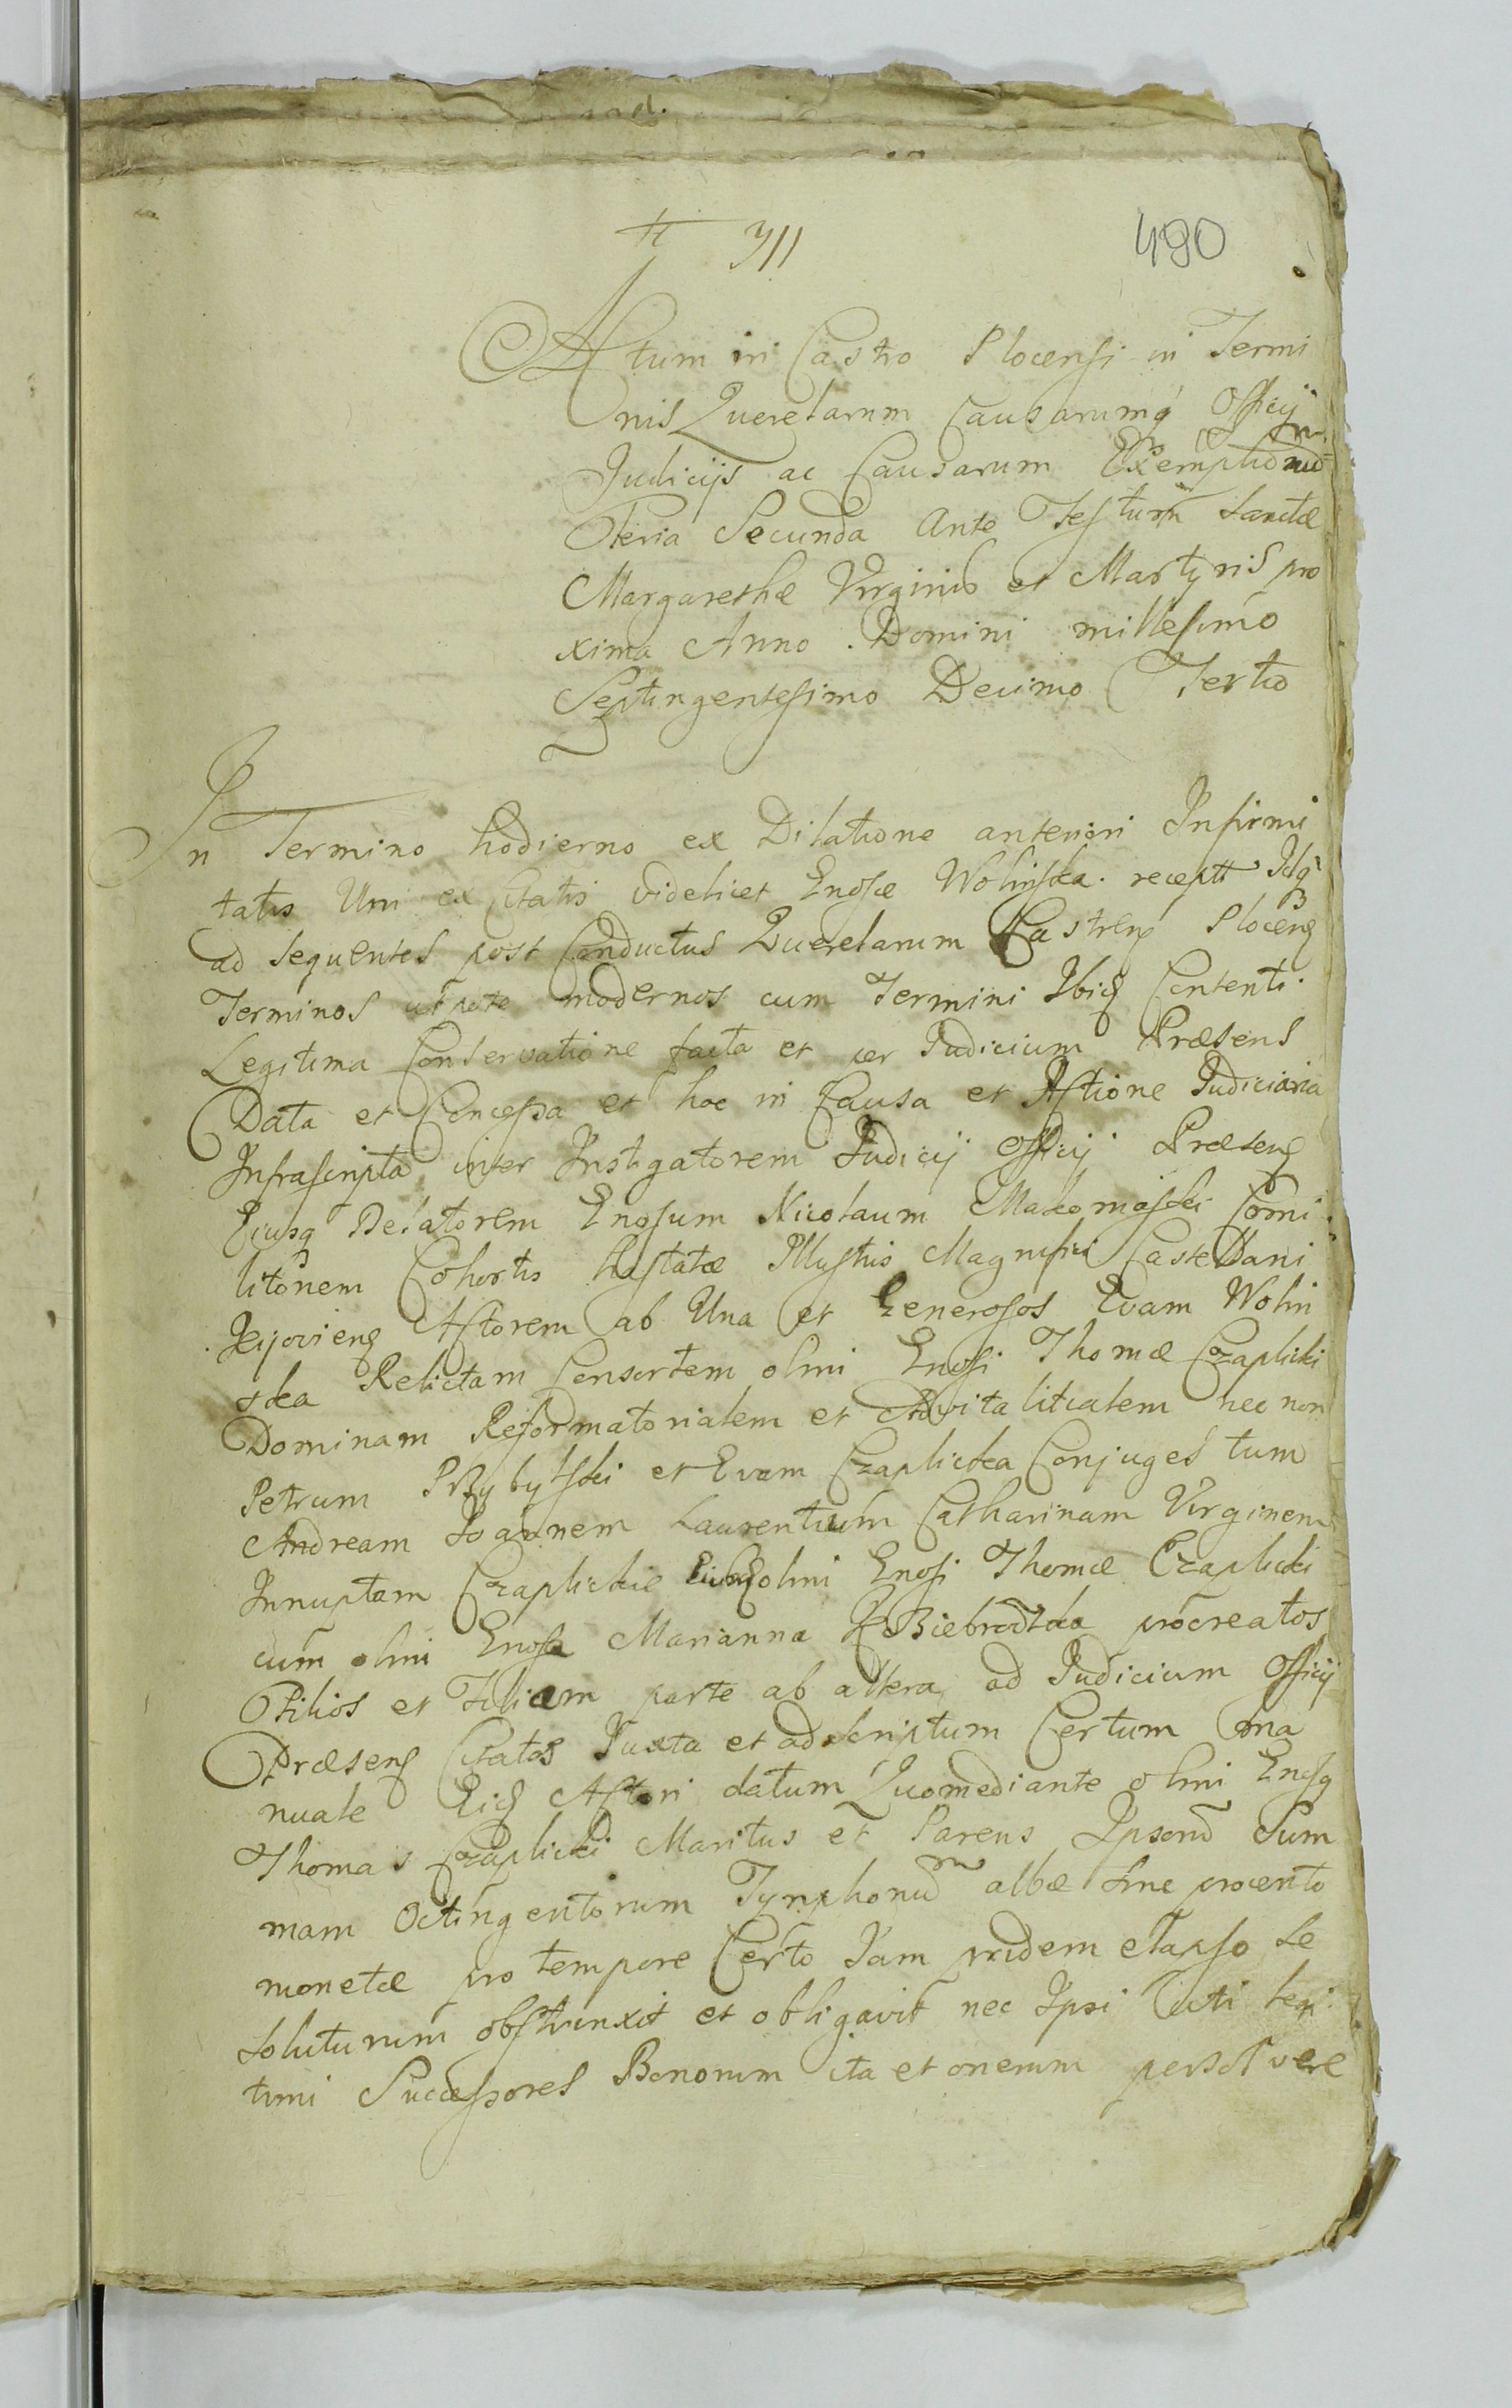 311
490
Actum in Castro Plocensi in Termi
nis Querelarum Causarumq Officij
Judicijs ac Causarum Exemptionu
Feria Secunda Ante Festum Sanctæ
Margarethæ Virginis et Martyris pro
xima Anno Domini millesimo
Septingentesimo Decimo Tertio
In Termino hodierno ex Dilatione anteriori Infirmi
tatis Uni ex Citatis videlicet Gnosæ Wolinska recept Idq
ad sequentes post Conductus Querelarum Castren Plocen
Terminos utpote modernos cum Termini Ibid Contenti
Legitima Conservatione facta et per Judicium Præsens
Data et Concessa et hoc in Causa et Actione Judiciaria
Infrascripta inter Instigatorem Judicij Officij Præsen
Eiusq Delatorem Gnosum Nicolaum Makomaski Comi
litonem Cohortis hastatæ Illustris Magnifici Castellani
Kijovien Actorem ab Una et Generosos Evam Wolin
ska Relictam Consortem olim Gnosi Thomæ Czaplicki
Dominam Reformatorialem et Advitalitialem nec non
Petrum Przybylski et Evam Czaplicka Conjuges tum
Andream Joannem Laurentium Catharinam Virginem
Innuptam Czaplickie olim Gnosi Thomæ Czaplicki
cum olim Gnosa Marianna Biebrodzka procreatos
Filios et Filiam parte ab altera ad Judicium Officij
Præsens Citatos Juxta et ad scriptum Certum ma
nuale Eid Actori datum Quomediante olim Gnosq
Thomas Czaplicki Maritus et Parens Ipsoru Sum
mam Octingentorum Tynphonu albæ sine procento
monetæ pro tempore Certo Jam pridem elapso se
soluturum obstrinxit et obligavit nec Ipsi Citti legi
timi Successores Bonorum ita et onerum persolvere